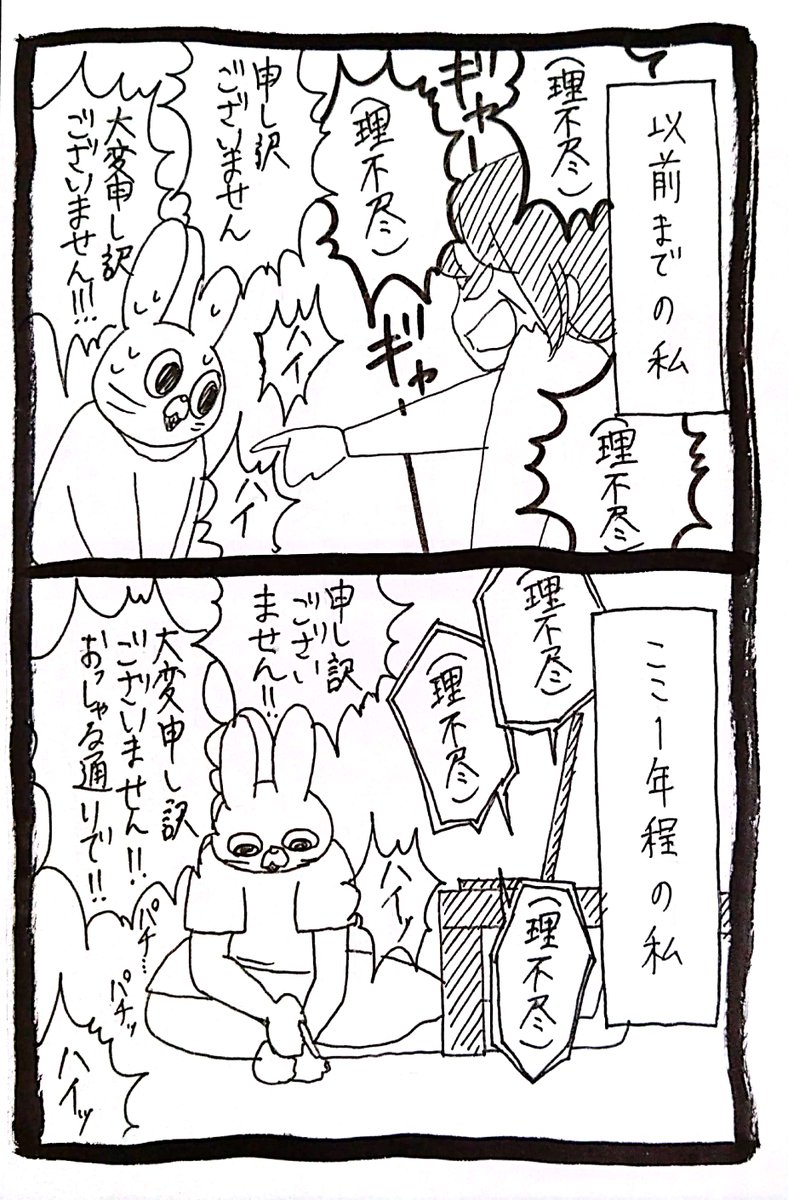 以前までの私
(理不尽)
ギャー
(理不尽)
ギャー
(理不尽)
ハイ
ハイ
申し訳
ございません
大変申し訳
ございません!!!
ここ1年程の私
(理不尽)
(理不尽)
(理不尽)
申し訳
ござい
ません!!
ハイッ
大変申し訳
ございません!!
おっしゃる通りで!!
パチ…
パチッ
ハイッ